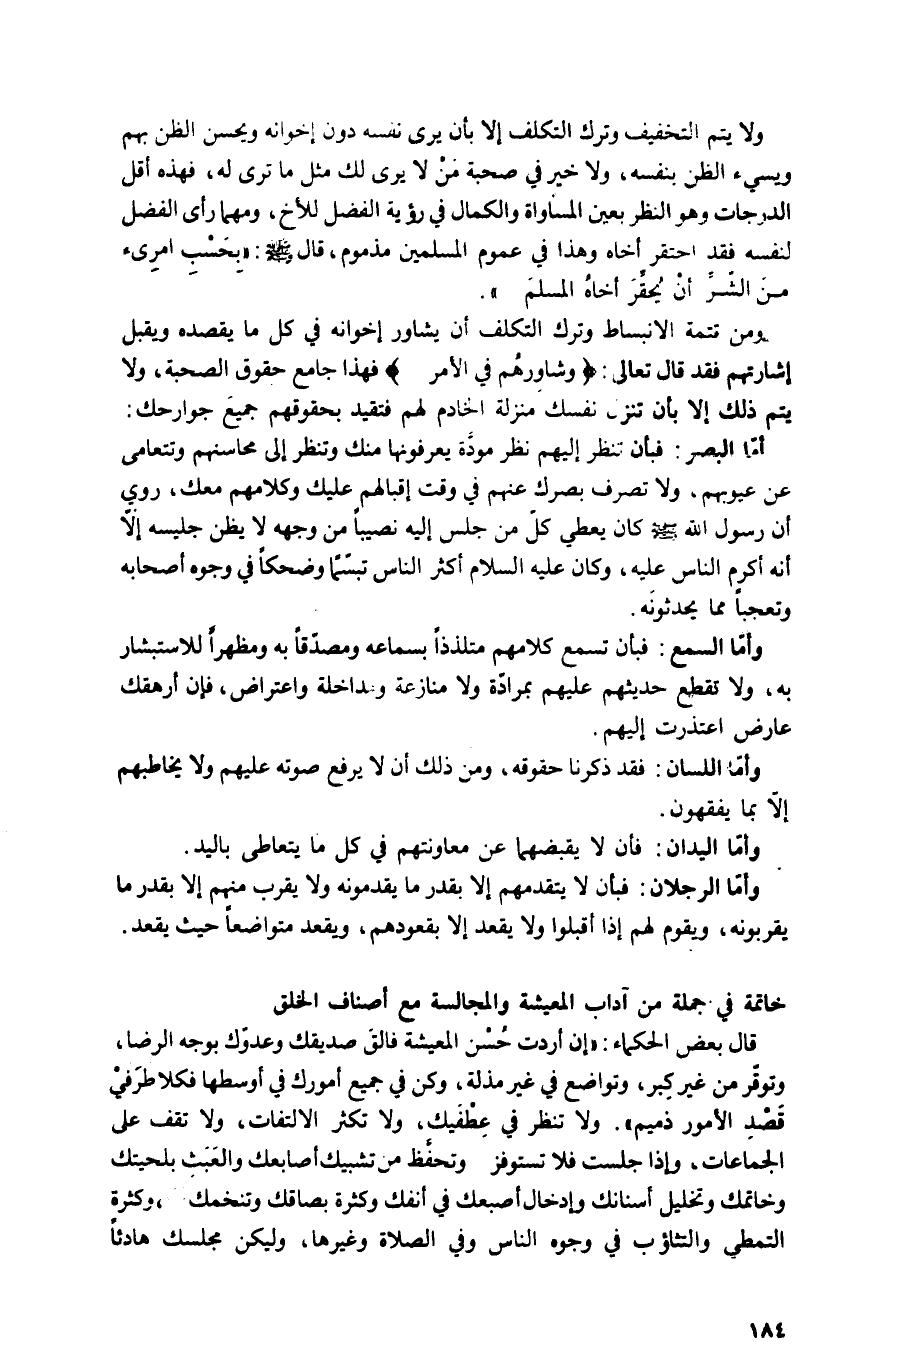 ولا يتم التخفيف وترك التكلف إلا بأن يرى نفسه دون إخوانه ويحسن الظن بهم
ويسيء الظن بنفسه، ولا خير في صحبة مَنْ لا يرى لك مثل ما ترى له، فهذه أقل
الدرجات وهو النظر بعين المساواة والكمال في رؤية الفضل للأخ، ومهما رأى الفضل
لنفسه فقد احتقر أخاه وهذا في عموم المسلمين مذموم، قال ﷺ: «بِحَسْبِ امرِىء
مِنَ الشَّرِّ أنْ يُحَقِّرَ أخاهُ المسلمَ ».
ومن تتمة الانبساط وترك التكلف أن يشاور إخوانه في كل ما يقصده ويقبل
إشارتهم فقد قال تعالى: ﴿ وشاورهُم في الأمر ﴾ فهذا جامع حقوق الصحبة، ولا
يتم ذلك إلا بأن تنزل نفسك منزلة الخادم لهم فتقيد بحقوقهم جميعَ جوارحك:
أمّا البصر: فبأن تنظر إليهم نظر مودَّة يعرفونها منك وتنظر إلى محاسنهم وتتعامى
عن عيوبهم. ولا تصرف بصرك عنهم في وقت إقبالهم عليك وكلامهم معك، روي
أن رسول الله ﷺ كان يعطي كلّ من جلس إليه نصيباً من وجهه لا يظن جليسه إلّا
أنه أكرم الناس عليه، وكان عليه السلام أكثر الناس تبسّماً وضحكاً في وجوه أصحابه
وتعجباً مما يحدثونَه.
وأمّا السمع: فبأن تسمع كلامهم متلذذاً بسماعه ومصدّقاً به ومظهراً للاستبشار
به، ولا تقطع حديثهم عليهم بمرادّة ولا منازعة ومداخلة واعتراض، فإن أرهقك
عارض اعتذرت إليهم.
وأمّا اللسان: فقد ذكرنا حقوقه، ومن ذلك أن لا يرفع صوته عليهم ولا يخاطبهم
إلّا بما يفقهون.
وأمّا اليدان: فأن لا يقبضهما عن معاونتهم في كل ما يتعاطى باليد.
وأمّا الرجلان: فبأن لا يتقدمهم إلا بقدر ما يقدمونه ولا يقرب منهم إلا بقدر ما
يقربونه، ويقوم لهم إذا أقبلوا ولا يقعد إلا بقعودهم، ويقعد متواضعاً حيث يقعد.
خاتمة في جملة من آداب المعيشة والمجالسة مع أصناف الخلق
قال بعض الحكماء: «إن أردت حُسْن المعيشة فالقَ صديقك وعدوّك بوجه الرضا،
وتوقّر من غير كِبر، وتواضع في غير مذلة، وكن في جميع أمورك في أوسطها فكلا طَرَفيْ
قَصْدِ الأمور ذميم». ولا تنظر في عِطْفَيك، ولا تكثر الالتفات، ولا تقف على
الجماعات، وإذا جلست فلا تستوفز وتحفَّظ من تشبيك أصابعك والعَبَث بلحيتك
وخاتمك وتخليل أسنانك وإدخال أصبعك في أنفك وكثرة بصاقك وتنخمك ،وكثرة
التمطي والتثاؤب في وجوه الناس وفي الصلاة وغيرها، وليكن مجلسك هادئاً
١٨٤